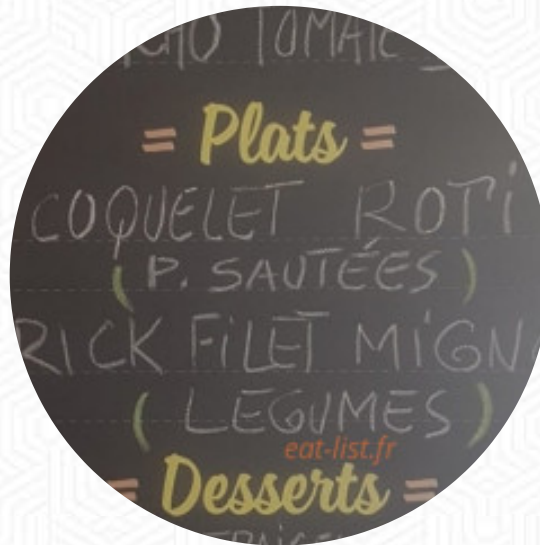 TOMATE
= Plats =
COQUELET ROTI
( P. SAUTÉES )
RICK FILET MIGN
( LEGUMES )
eat-list.fr
= Desserts =